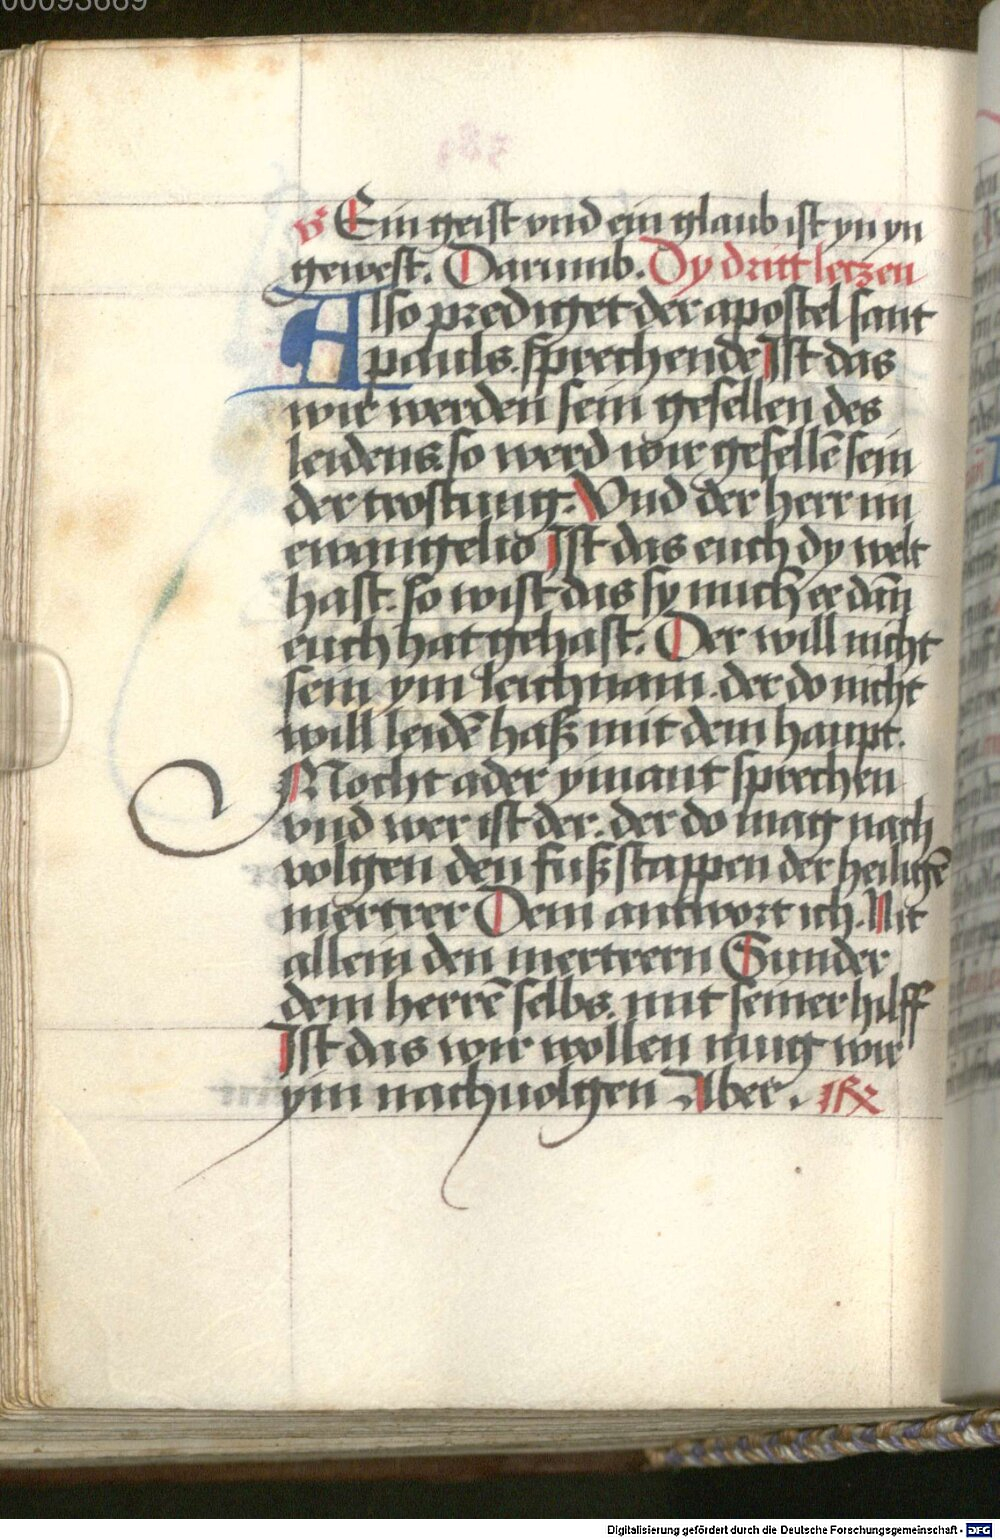 00093669
v̕ Ein geist vnd ein glaub ist yn yn
gewest. Darumb. Dy dritt leczen
Also prediget der apostel sant
pauls. sprechende Ist das
wir werden sein gesellen des
leidens. so werd wir geselle͂ sein
der trostung. Vnd der herr im
ewangelio Ist das euch dy welt
hast. so wist das sy mich ee dan̄
euch hat gehast. Der will nicht
sein ym leichnam. der do nicht
will leide͂ haß mit dem haupt.
Mocht ader ymant sprechen
vnd wer ist der. der do mag nach
volgen den fußstappen der heilige͂
mertrer Dem antwort ich. Nit
allein den mertrern Sunder
dem herre͂ selbs. mit seiner hilff
Ist das wir wollen mug wir
ym nachuolgen Aber. R̸
Digitalisierung gefördert durch die Deutsche Forschungsgemeinschaft - DFG